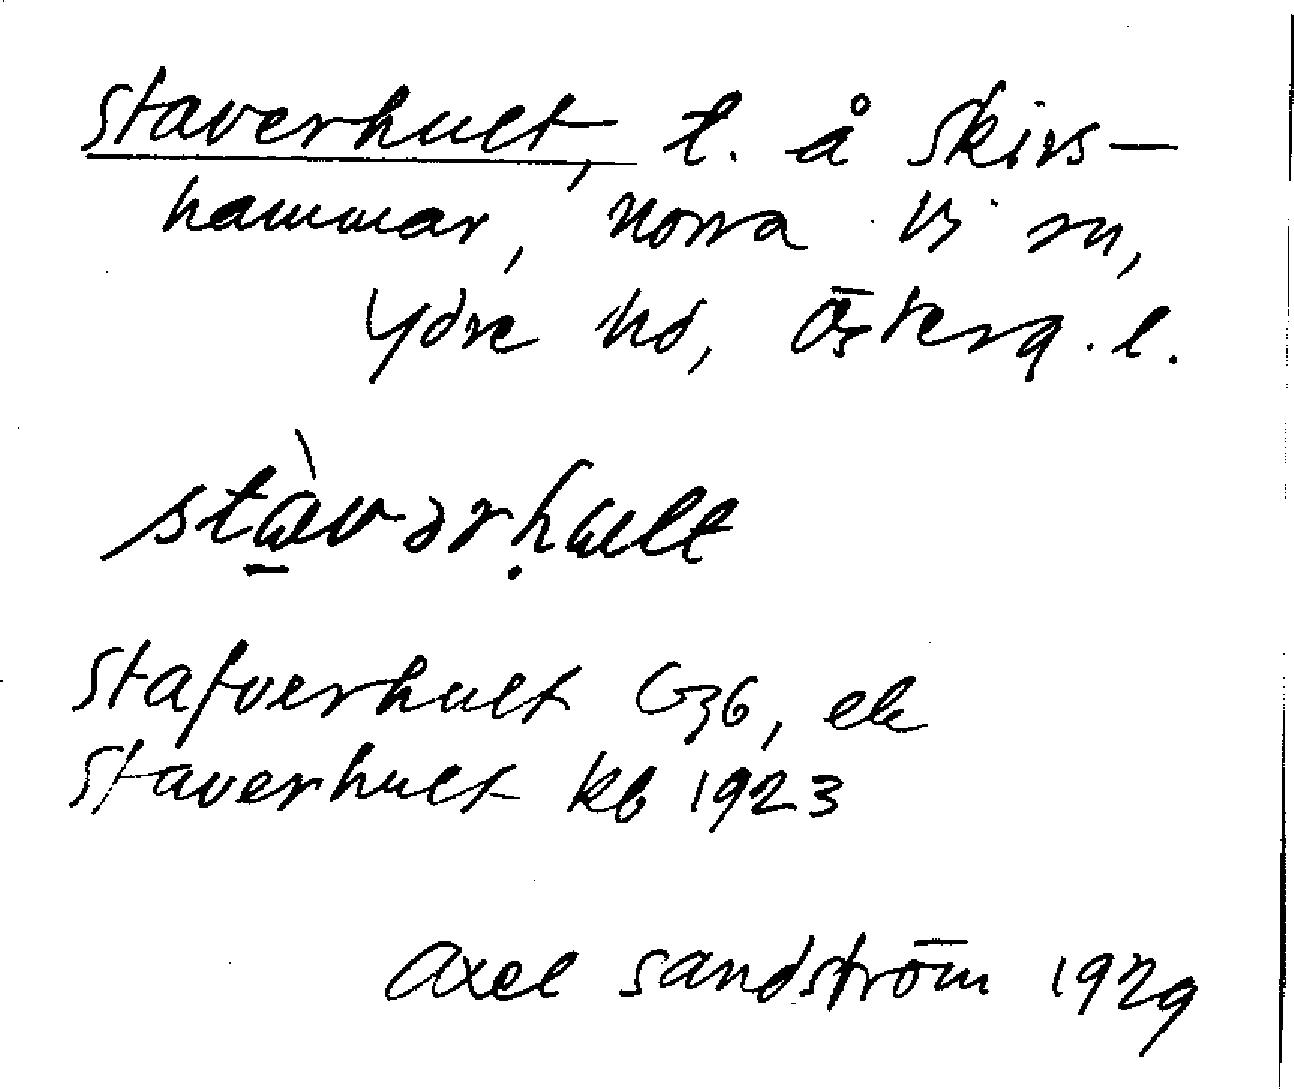 Staverhult, t. å Skirs-
hammar, Norra Vi sn,
Ydre hd, Österg. l.
stàvərhult
Stafverhult G36, ek
Staverhult kb 1923
Axel Sandström 1929